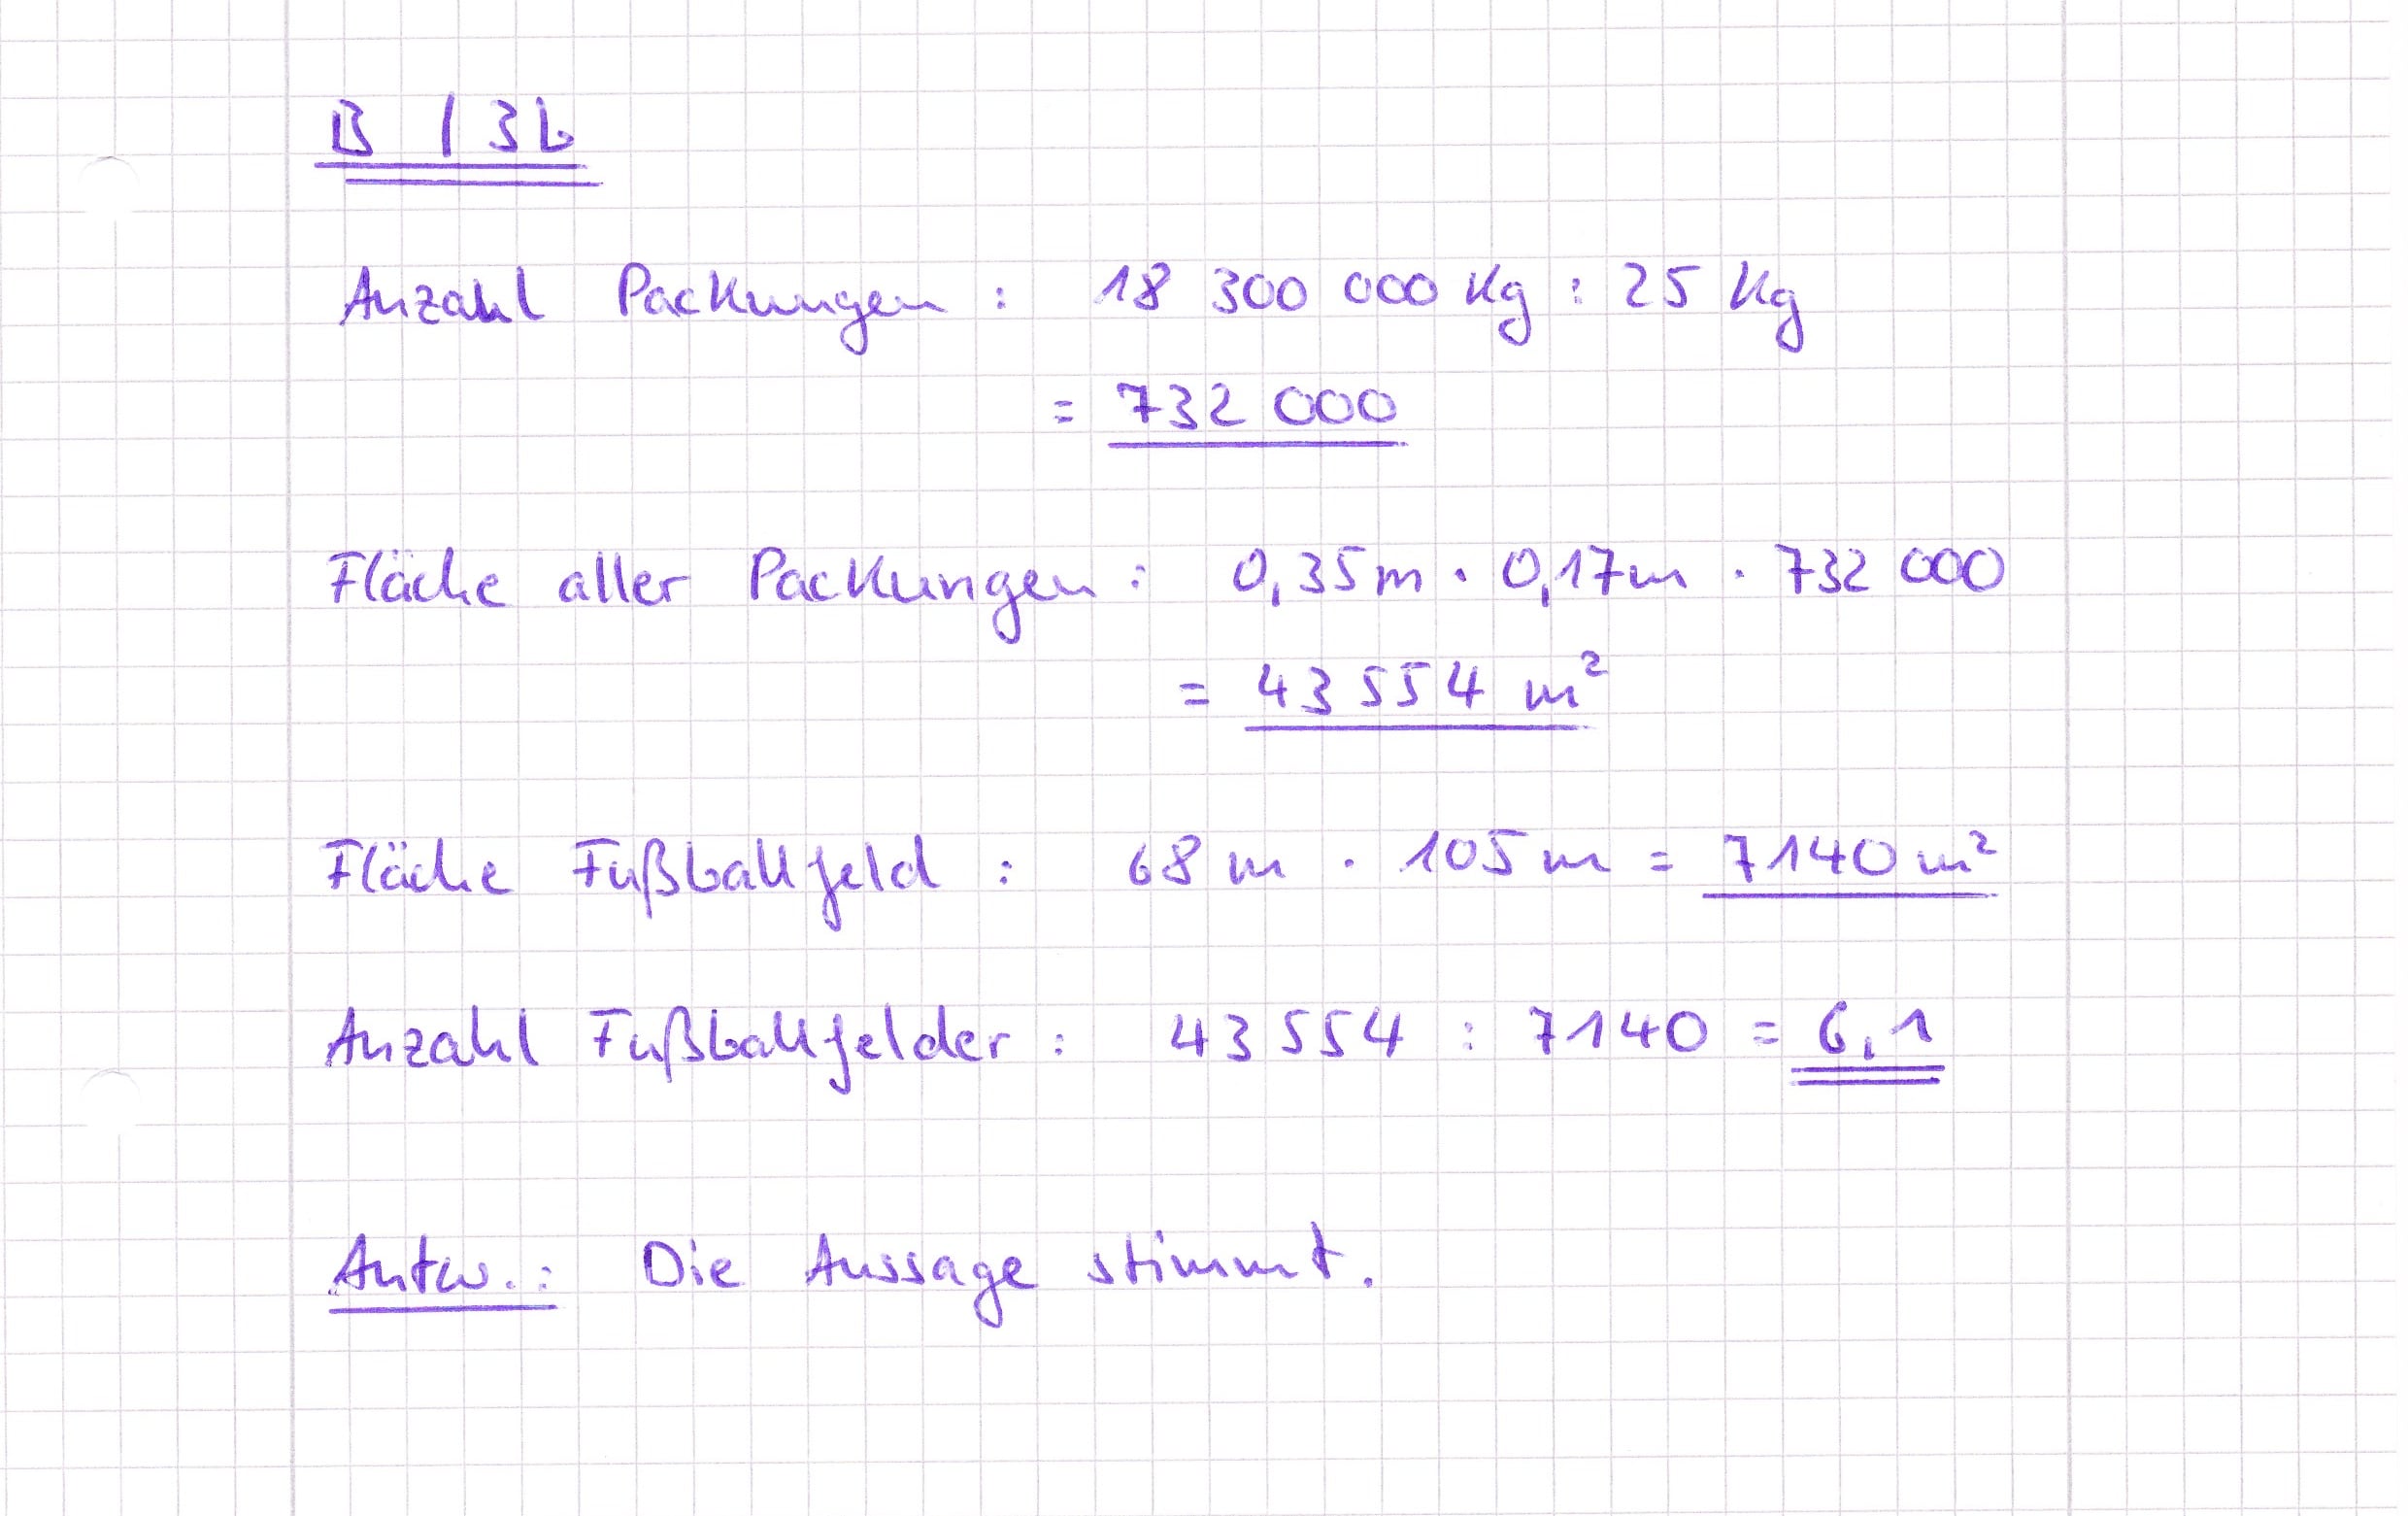 B / 3b
Anzahl Packungen : 18 300 000 Kg : 25 Kg
= 732 000
Fläche aller Packungen : 0,35m · 0,17m · 732 000
= 43 554 m²
Fläche Fußballfeld : 68 m · 105 m = 7140 m²
Anzahl Fußballfelder : 43 554 : 7140 = 6,1
Antw. : Die Aussage stimmt.